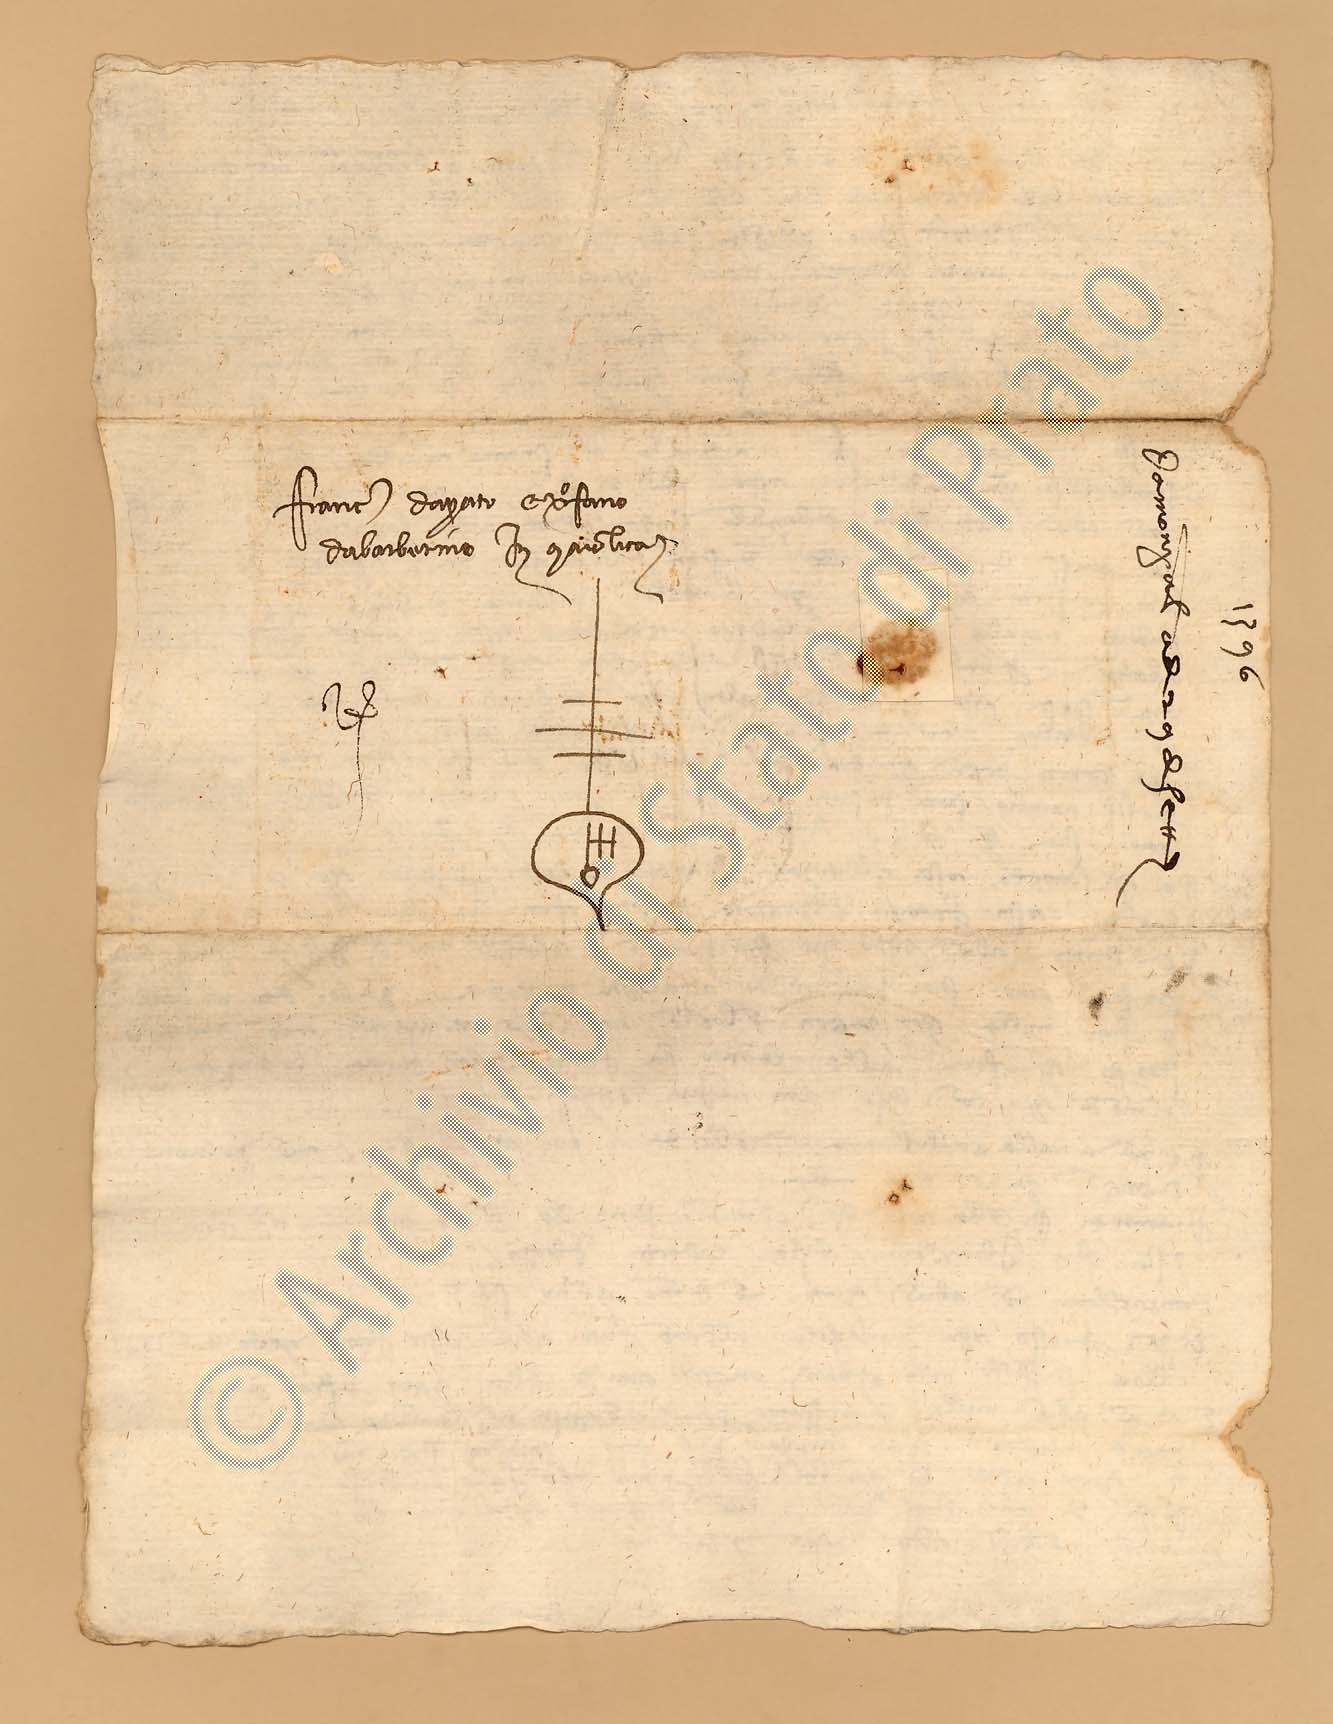 Franc° daprato e xpofano
dabarberino In maiolica
1396
da mongral ad 29 di sett
© Archivio di Stato di Prato